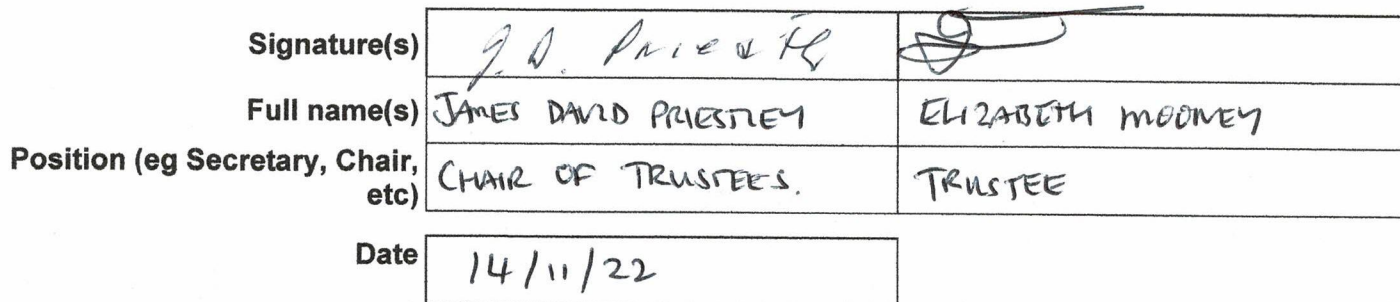 Signature(s) J. D. Priestley
Full name(s) JAMES DAVID PRIESTLEY ELIZABETH MOONEY
Position (eg Secretary, Chair, CHAIR OF TRUSTEES. TRUSTEE
etc)
Date 14/11/22